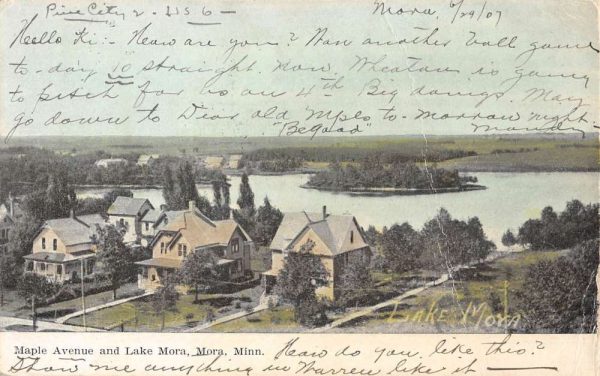 Pine City 2 - US 6 -
Mora, 6/29/07
Hello Hi :- How are you? Won another ball game
to-day 10 straight now. Wheaton is going
to pitch for us on 4th Big doings. May
go down to Dear old Mpls to-morrow night -
"Begood"
Mandy
Lake Mora
Maple Avenue and Lake Mora, Mora, Minn.
How do you like this?
Show me anything in Warren like it -